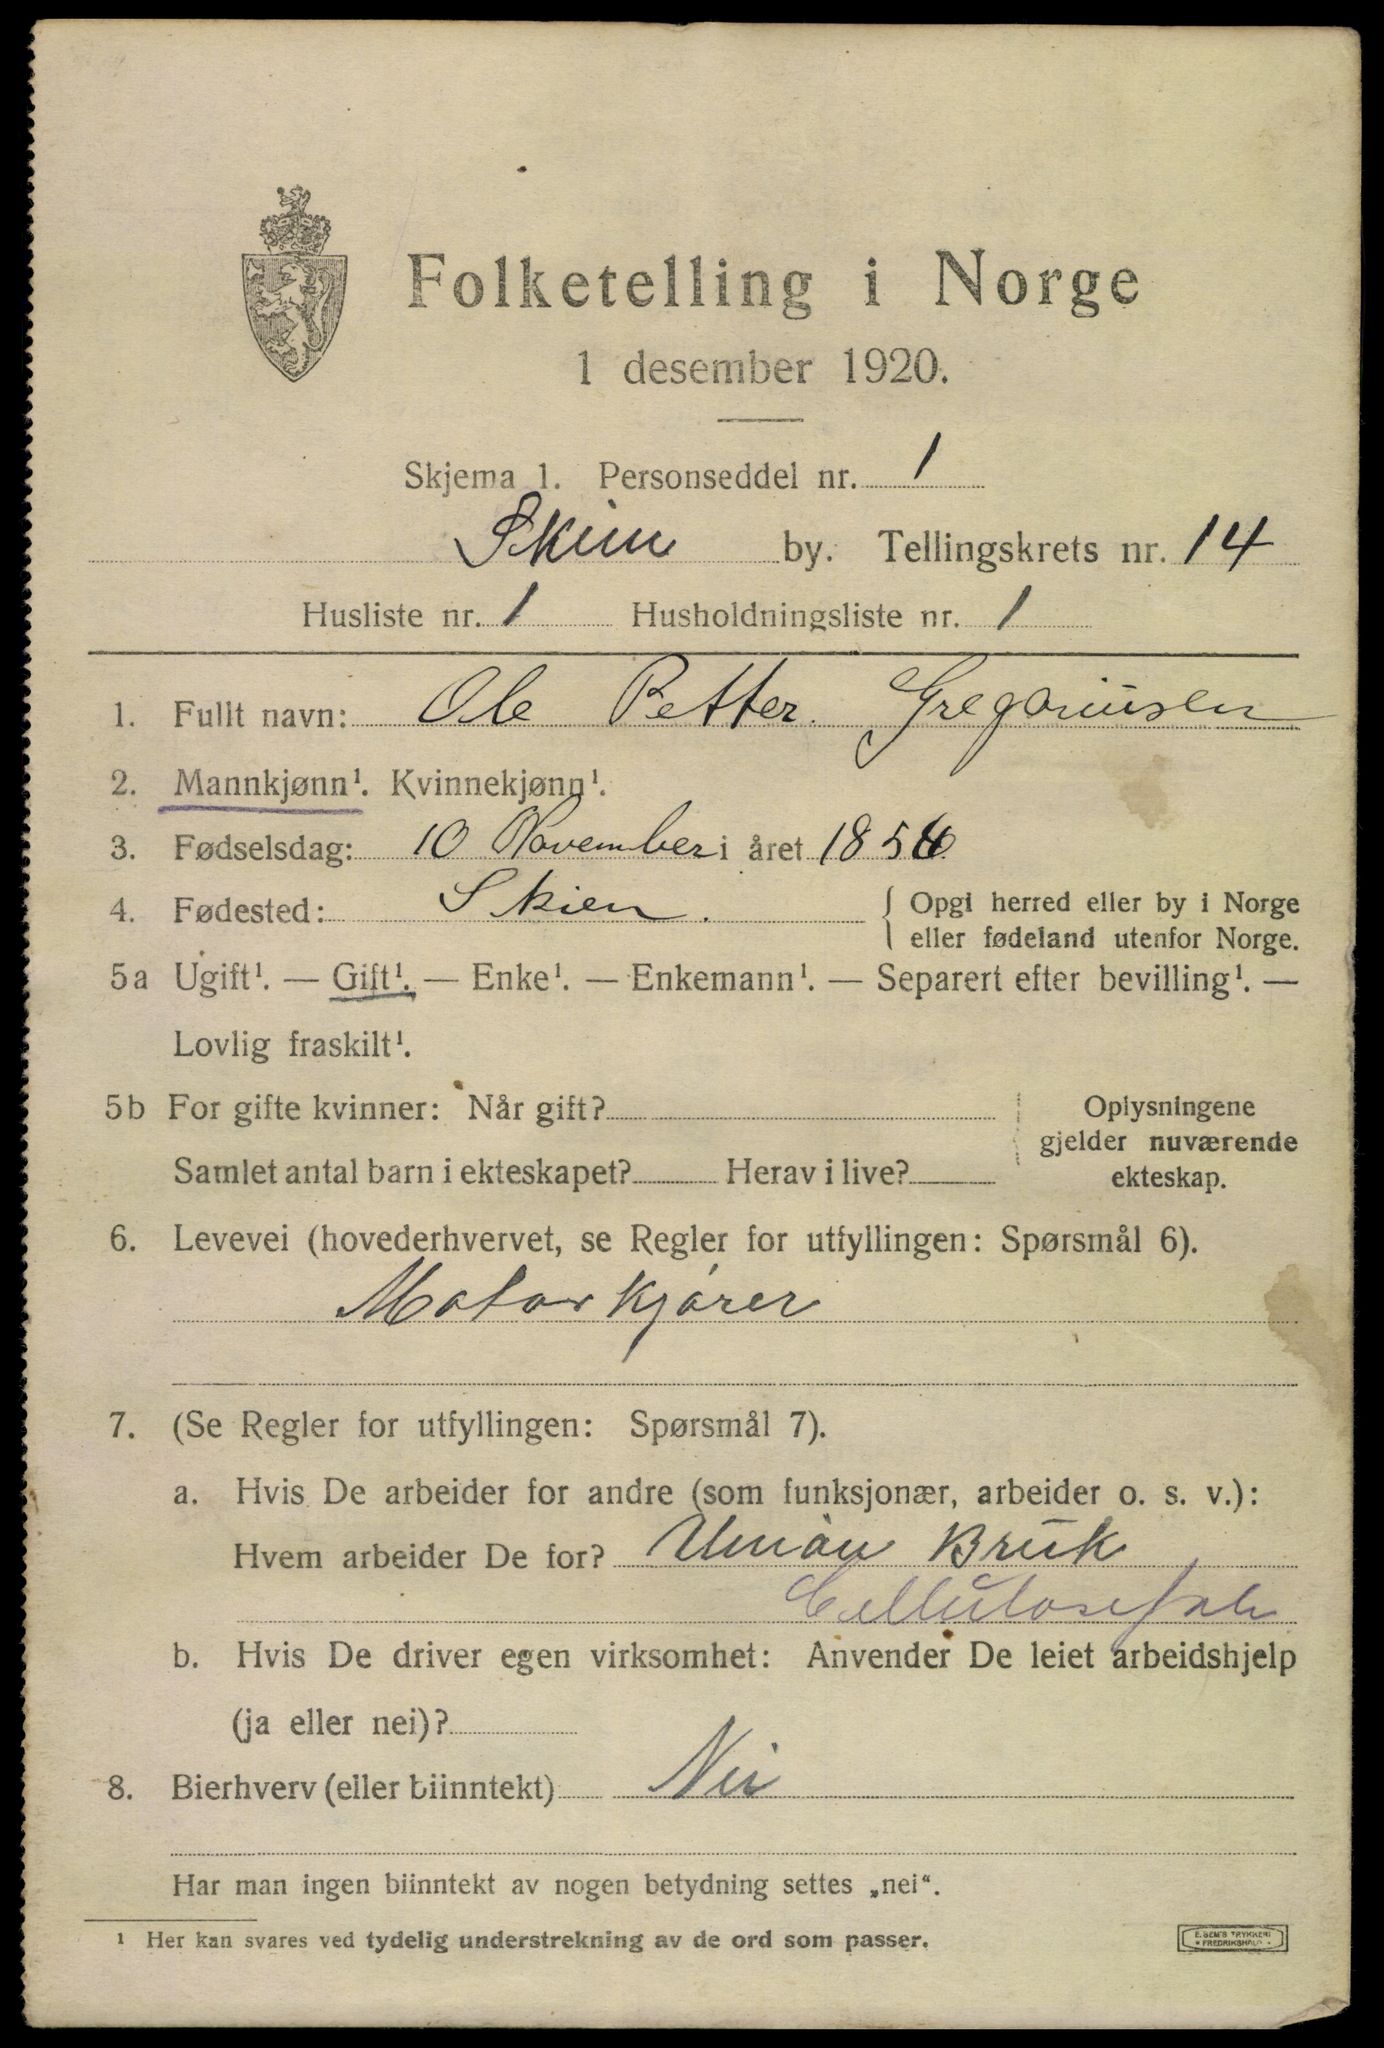 Folketelling i Norge
1 desember 1920.
Skjema 1. Personseddel nr. 1
Skien by. Tellingskrets nr. 14
Husliste nr. 1 Husholdningsliste nr. 1
1. Fullt navn: Ole Petter Gregoriusen
2. Mannkjønn¹. Kvinnekjønn¹.
3. Fødselsdag: 10 November i året 1856
4. Fødested: Skien. { Opgi herred eller by i Norge
eller fødeland utenfor Norge.
5a Ugift¹. — Gift¹. — Enke¹. — Enkemann¹. — Separert efter bevilling¹. —
Lovlig fraskilt¹.
5b For gifte kvinner: Når gift? Oplysningene
gjelder nuværende
Samlet antal barn i ekteskapet? Herav i live? ekteskap.
6. Levevei (hovederhvervet, se Regler for utfyllingen: Spørsmål 6).
Motorkjører
7. (Se Regler for utfyllingen: Spørsmål 7).
a. Hvis De arbeider for andre (som funksjonær, arbeider o. s. v.):
Hvem arbeider De for? Union Bruk
Cellulosefab
b. Hvis De driver egen virksomhet: Anvender De leiet arbeidshjelp
(ja eller nei)?
8. Bierhverv (eller biinntekt) Nei
Har man ingen biinntekt av nogen betydning settes „nei“.
¹ Her kan svares ved tydelig understrekning av de ord som passer.
E. SEM'S TRYKKERI
FREDRIKSHALD